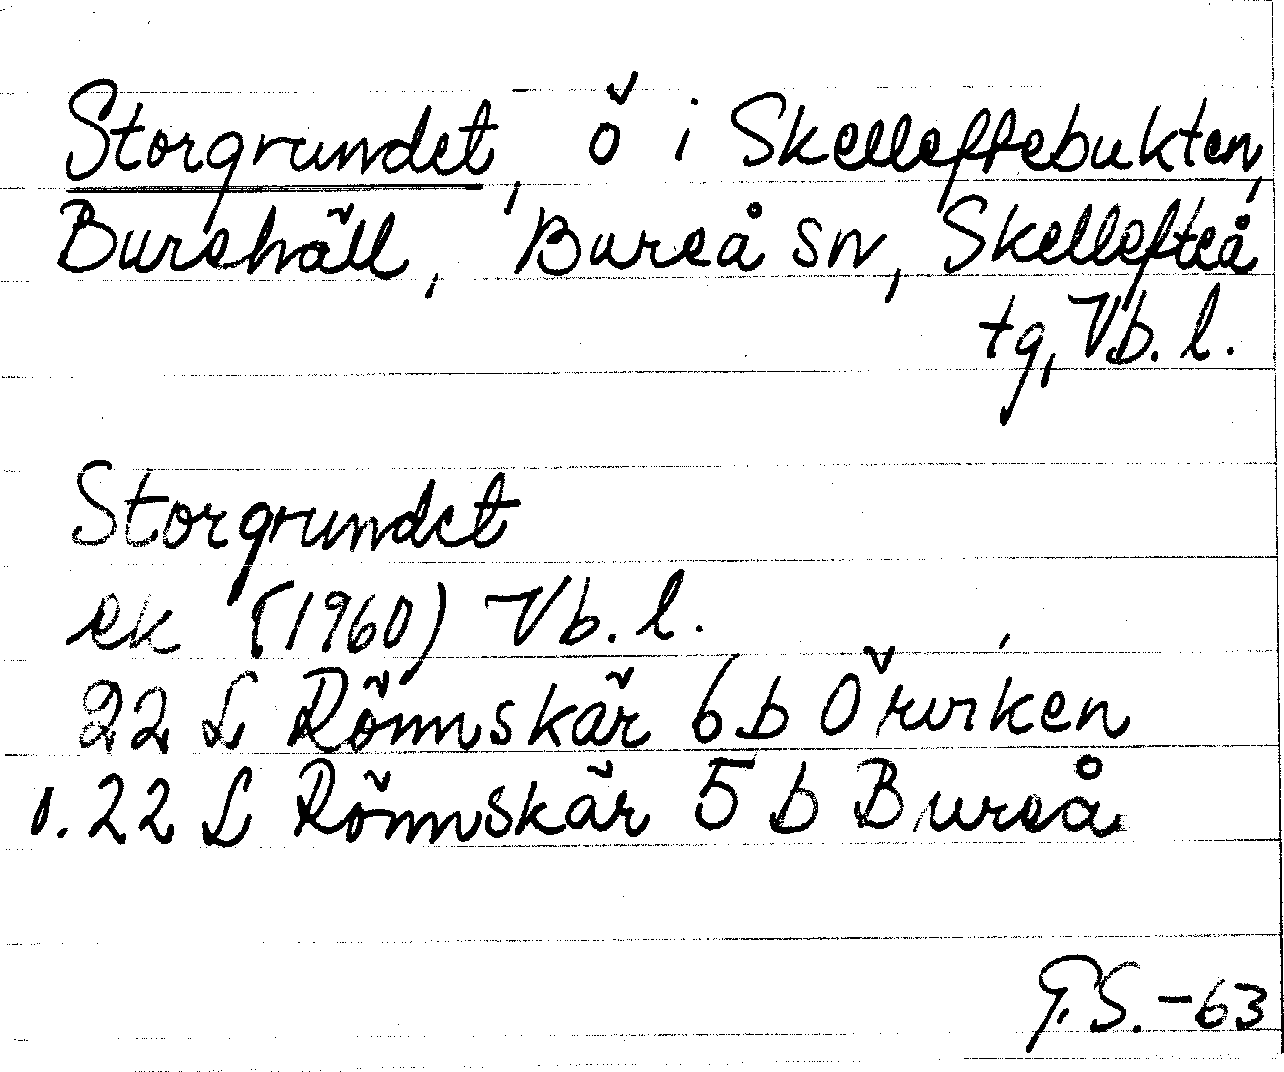 Storgrundet, ö i Skelleftebukten,
Burehäll, Bureå sn, Skellefteå
tg, Vb. l.
Storgrundet
ek (1960) Vb. l.
22 L Rönnskär 6 b Örviken
o. 22 L Rönnskär 5 b Bureå
G.S. -63